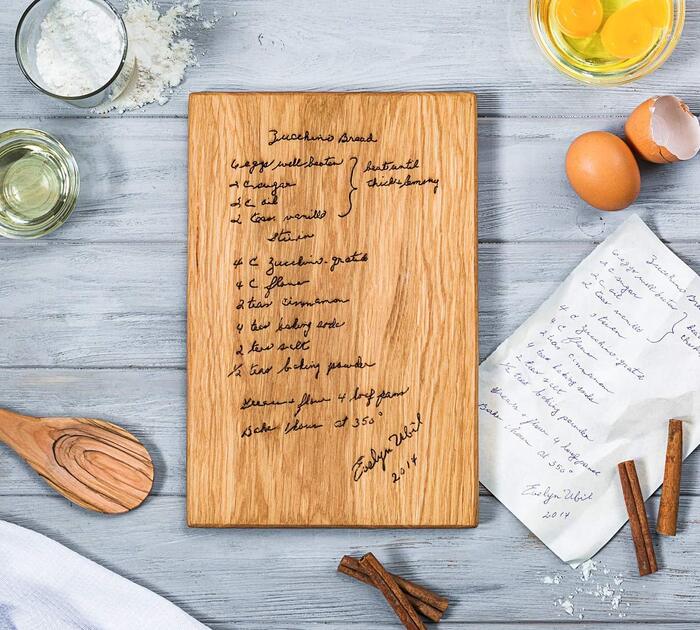 Zucchini Bread
6 eggs well beaten } beat until
2 C sugar thick & lemony
2 C oil
2 teas vanilla
Stir in
4 C Zucchini - grated
4 C flour
2 teas cinnamon
4 teas baking soda
2 teas salt
1/2 teas baking powder
Grease & flour 4 loaf pans
Bake 1 hour at 350°
Evelyn Ubil
2014
Zucchini
6 eggs well beaten }
2 C sugar
2 C oil
2 teas vanilla
Stir in
4 C Zucchini - grated
4 C flour
2 teas cinnamon
4 teas baking soda
2 teas salt
1/2 teas baking powder
Grease & flour 4 loaf pans
Bake 1 hour at 350°
Evelyn Ubil
2014